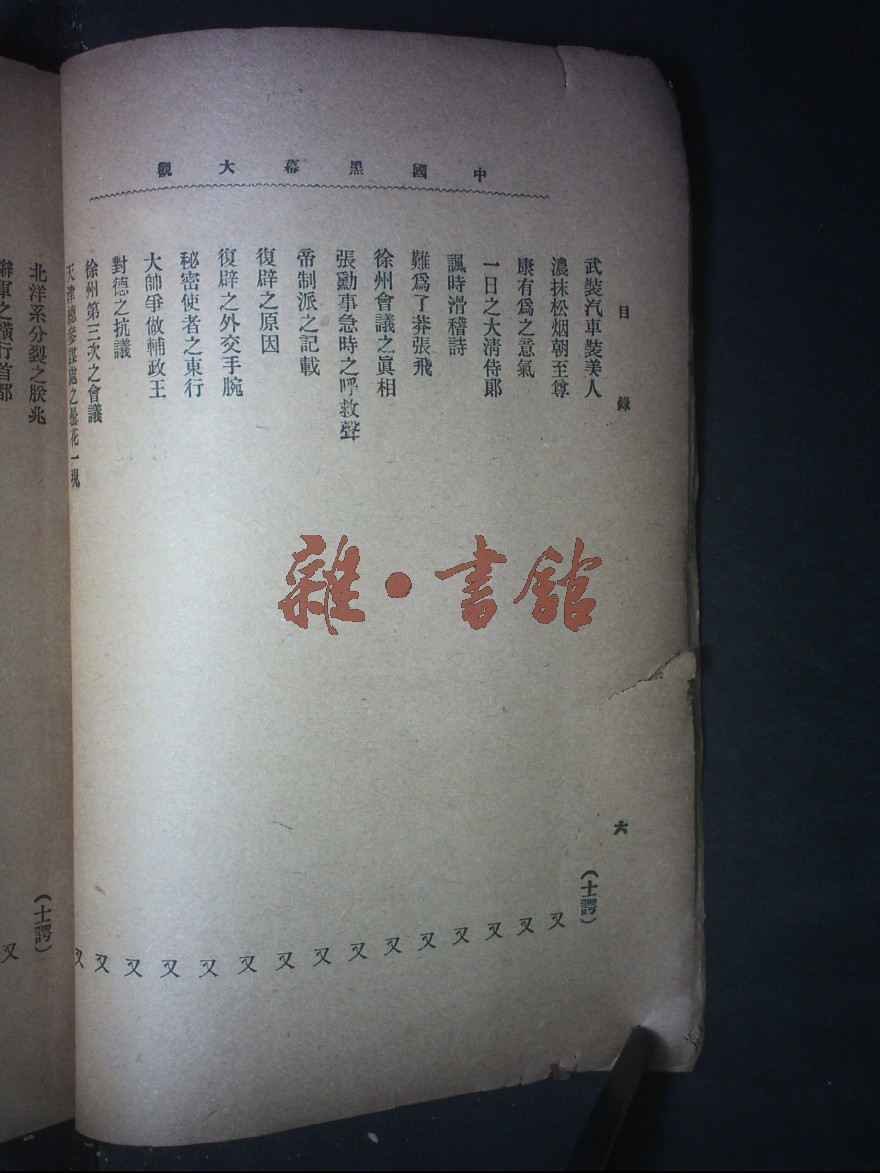 中國黑幕大觀
目錄 六
武裝汽車裝美人 (士諤)
濃抹松烟朝至尊 又
康有爲之意氣 又
一日之大淸侍郞 又
諷時滑稽詩 又
難爲了莽張飛 又
徐州會議之眞相 又
張勳事急時之呼救聲 又
帝制派之記載 又
復辟之原因 又
復辟之外交手腕 又
秘密使者之東行 又
大帥爭做輔政王 又
對德之抗議 又
徐州第三次之會議 又
天津總參謀處之曇花一現 又
北洋系分裂之朕兆 (士諤)
辮軍之橫行首都 又
雜·書館